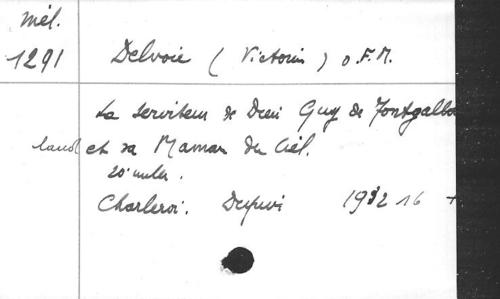 Mél.
1291 Delvoie (Victorin) O.F.M.
Le serviteur de Dieu Guy de Fontgalland
et sa Maman du Ciel.
20e mille.
Charleroi. Dupuis 1932 16 +